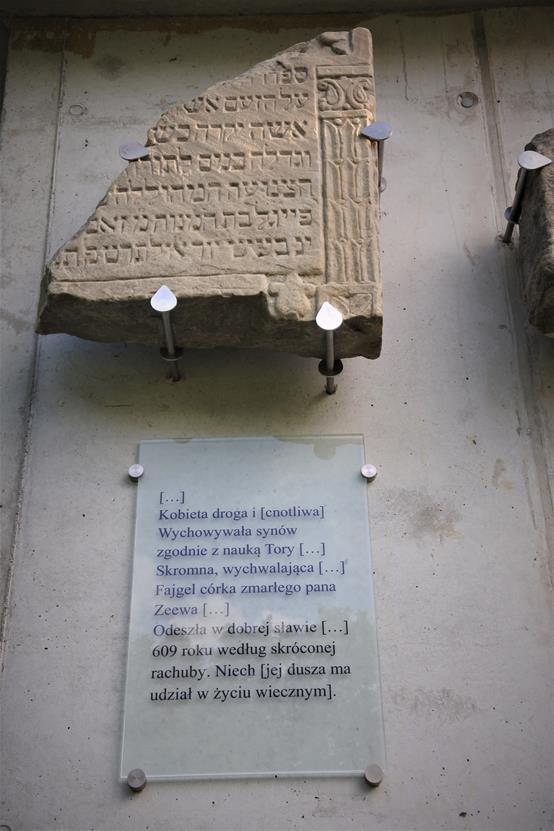 על הזעם אש
אשה יקרה כש
וגדלה בנים לתור
הצנועה המהוללה
פייגל בת המנוח מ זאב
[…]
Kobieta droga i [cnotliwa]
Wychowywała synów
zgodnie z nauką Tory […]
Skromna, wychwalająca […]
Fajgel córka zmarłego pana
Zeewa […]
Odeszła w dobrej sławie […]
609 roku według skróconej
rachuby. Niech [jej dusza ma
udział w życiu wiecznym].